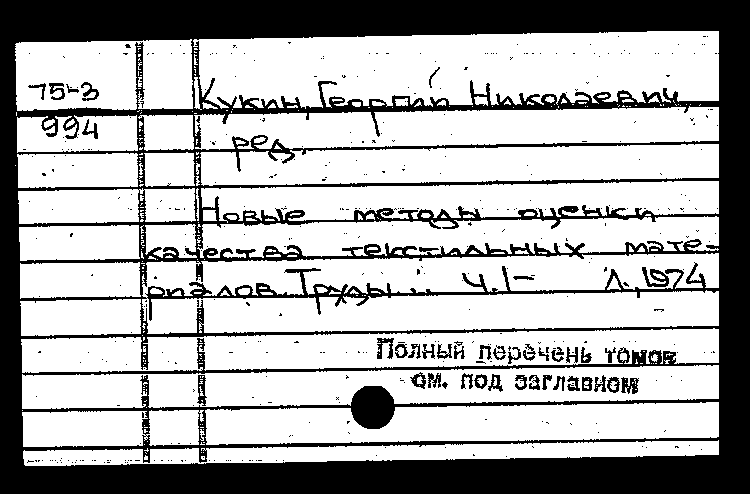 75-3
994
Кукин, Георгий Николаевич,
ред.
Новые методы оценки
качества текстильных мате-
риалов. Труды... Ч.1- Л., 1974.
Полный перечень томов
см. под заглавием